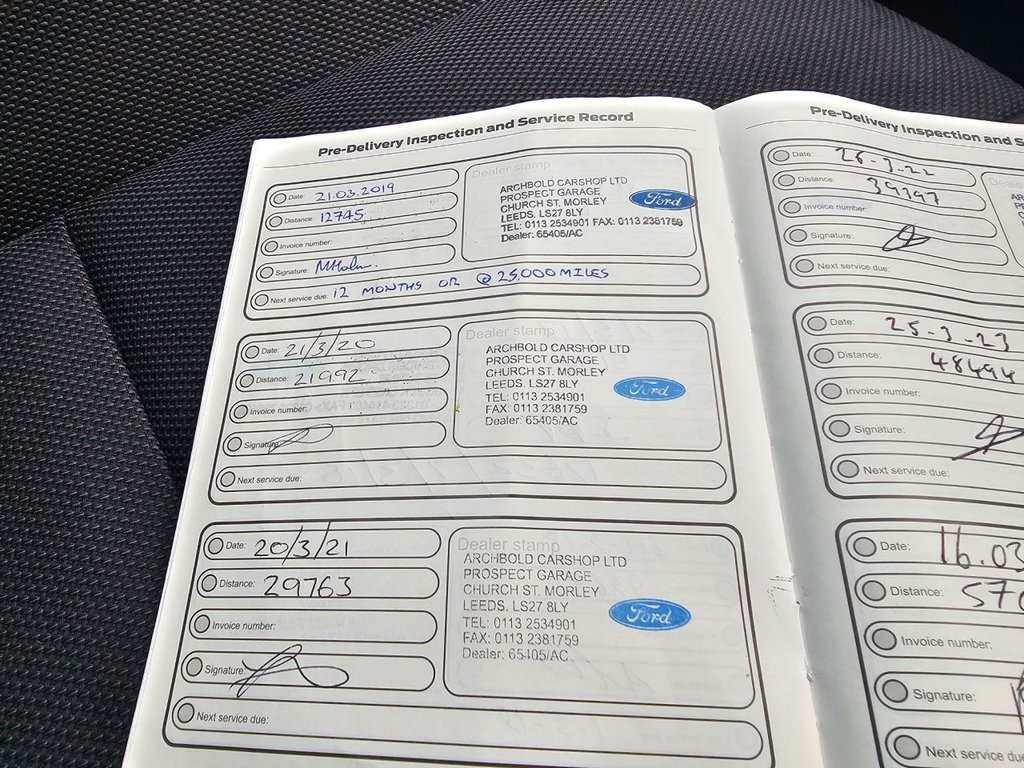 Pre-Delivery Inspection and Service Record
Date: 21.03.2019
Distance: 12745
Invoice number:
Signature:
Next service due: 12 MONTHS OR @ 25,000 MILES
Dealer stamp
ARCHBOLD CARSHOP LTD
PROSPECT GARAGE
CHURCH ST. MORLEY
LEEDS. LS27 8LY
TEL: 0113 2534901 FAX: 0113 2381759
Dealer: 65405/AC
Ford
Date: 21/3/20
Distance: 21992
Invoice number:
Signature:
Next service due:
Dealer stamp
ARCHBOLD CARSHOP LTD
PROSPECT GARAGE
CHURCH ST. MORLEY
LEEDS. LS27 8LY
TEL: 0113 2534901
FAX: 0113 2381759
Dealer: 65405/AC
Ford
Date: 20/3/21
Distance: 29763
Invoice number:
Signature:
Next service due:
Dealer stamp
ARCHBOLD CARSHOP LTD
PROSPECT GARAGE
CHURCH ST. MORLEY
LEEDS. LS27 8LY
TEL: 0113 2534901
FAX: 0113 2381759
Dealer: 65405/AC
Ford
Pre-Delivery Inspection and S
Date: 26-3-22
Distance: 39397
Invoice number:
Signature:
Next service due:
Dealer
Date: 25-3-23
Distance: 48494
Invoice number:
Signature:
Next service due:
Date: 16.03
Distance: 57
Invoice number:
Signature:
Next service due: